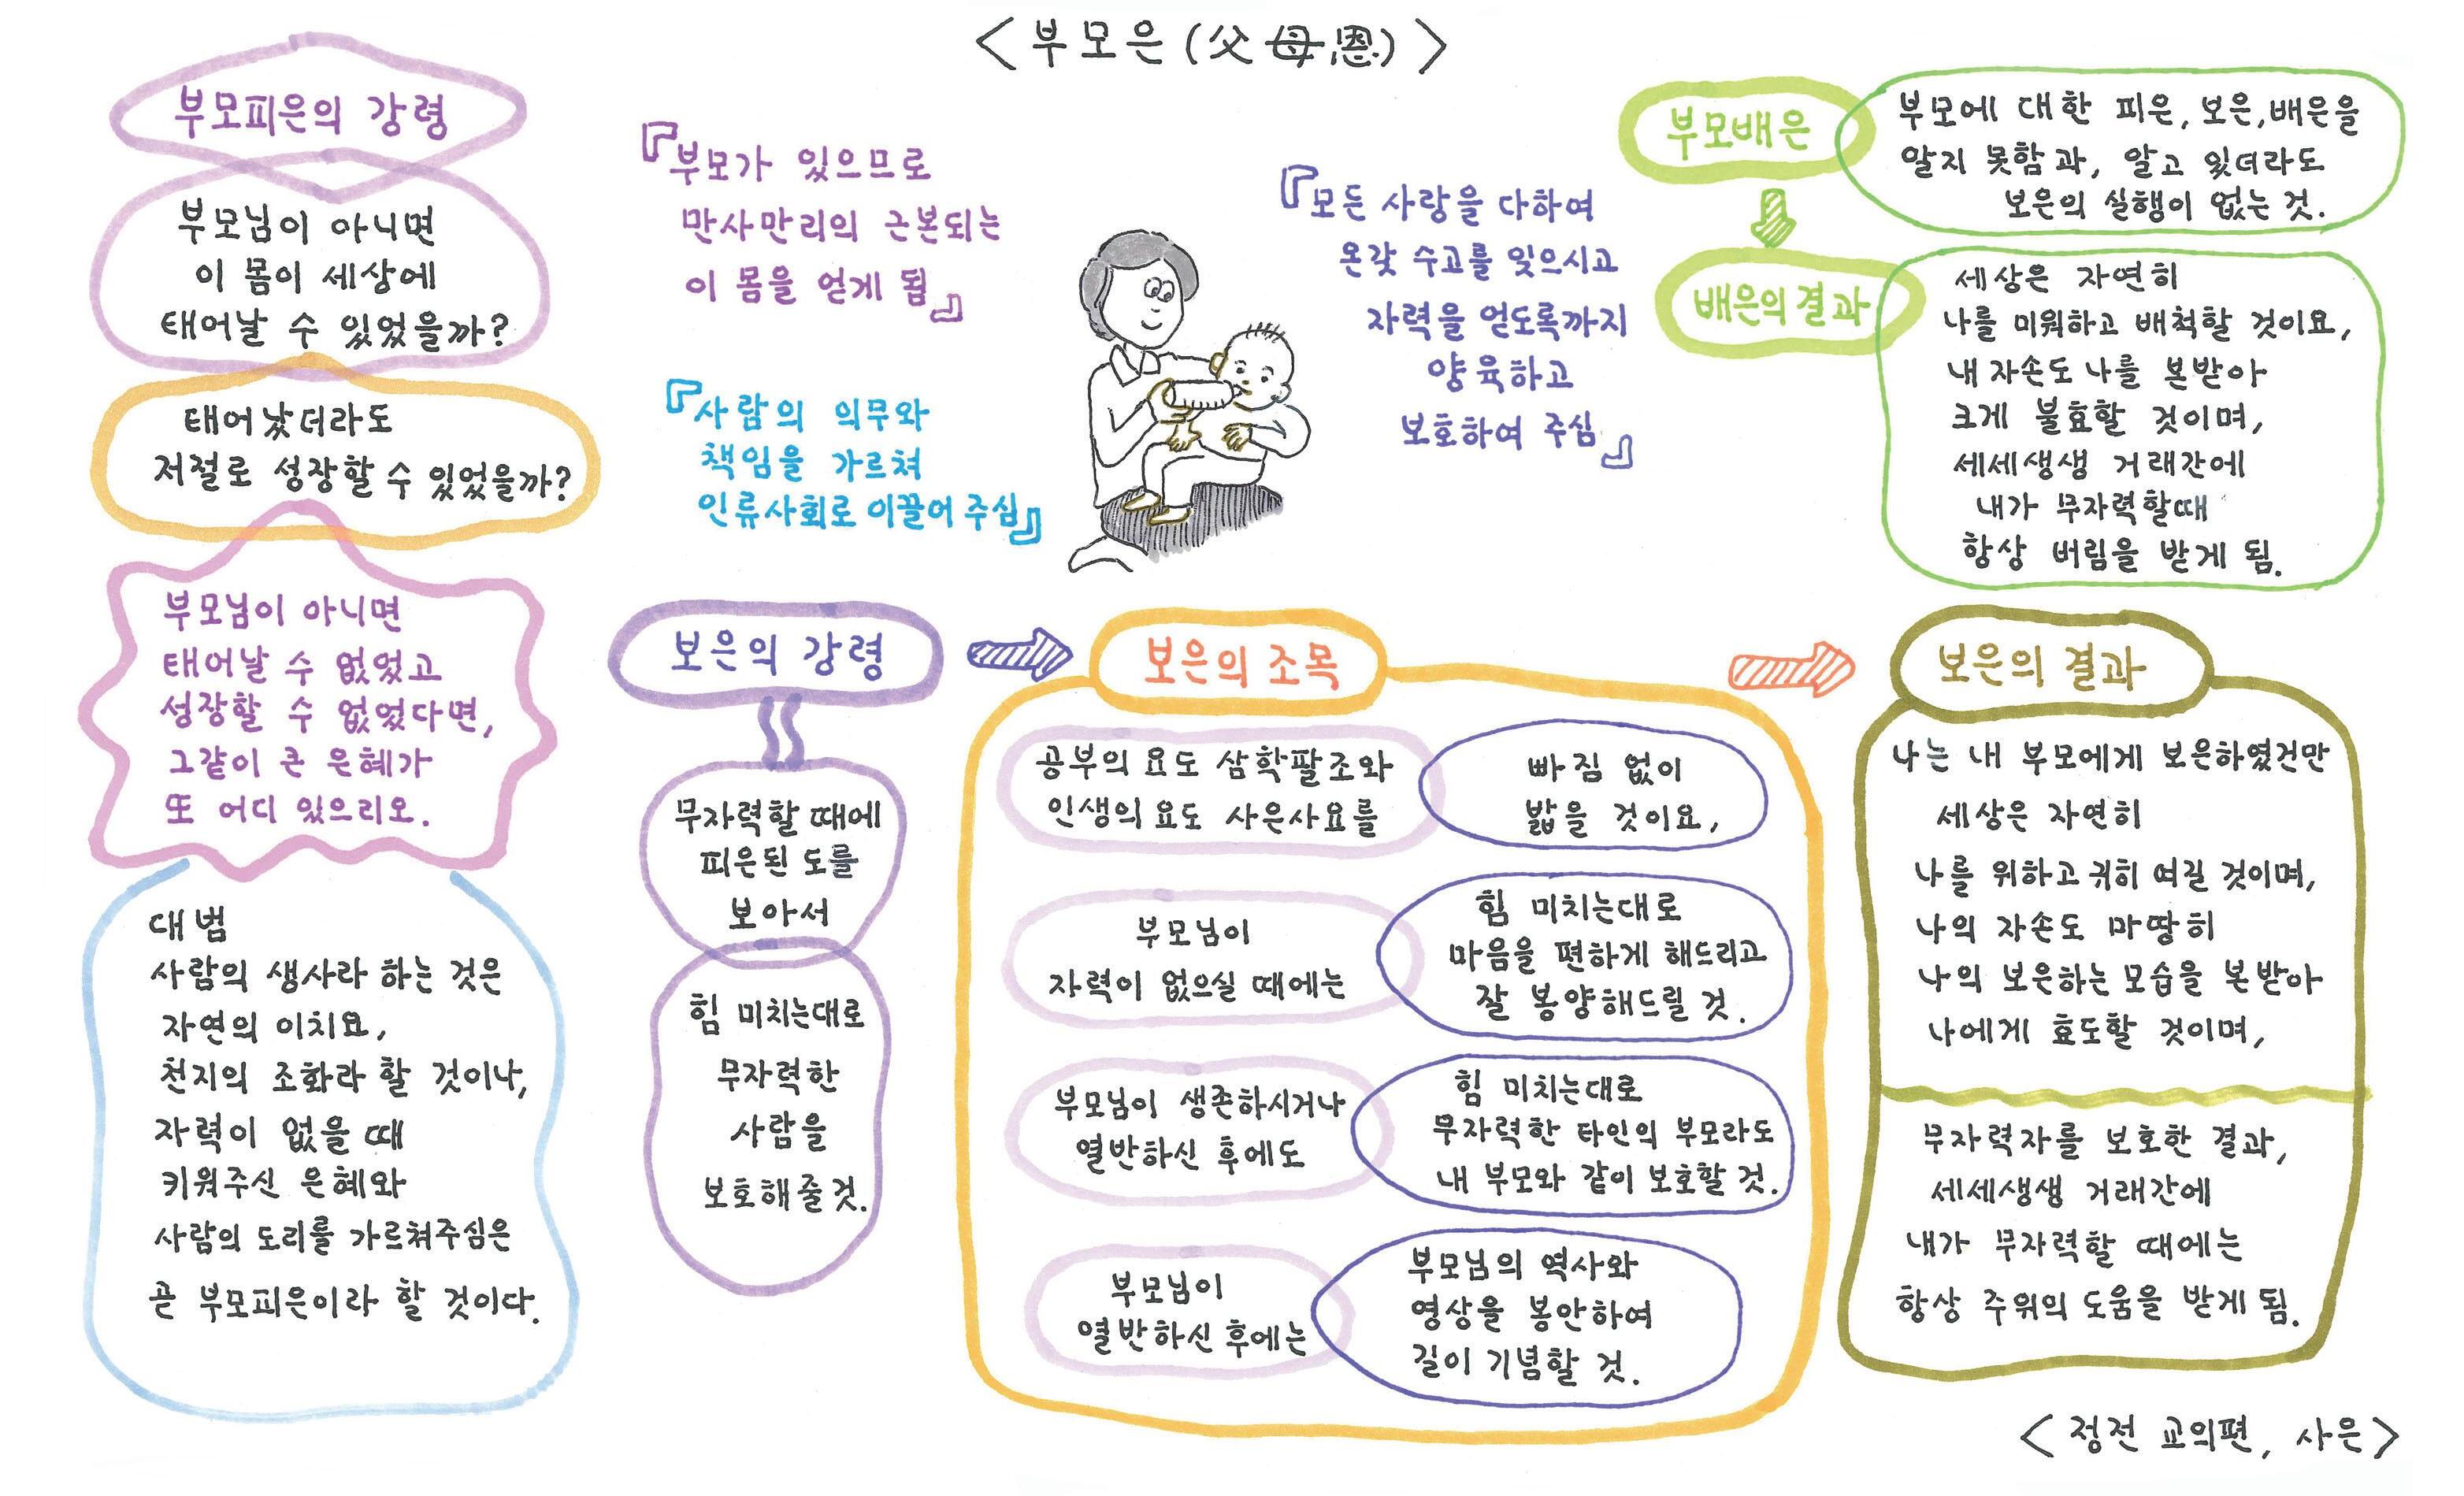 <부모은(父母恩)>
부모피은의 강령
부모님이 아니면
이 몸이 세상에
태어날 수 있었을까?
태어났더라도
저절로 성장할 수 있었을까?
부모님이 아니면
태어날 수 없었고
성장할 수 없었다면,
그같이 큰 은혜가
또 어디 있으리오.
대범
사람의 생사라 하는 것은
자연의 이치요,
천지의 조화라 할 것이나,
자력이 없을 때
키워주신 은혜와
사람의 도리를 가르쳐주심은
곧 부모피은이라 할 것이다.
『부모가 있으므로
만사만리의 근본되는
이 몸을 얻게 됨』
『사람의 의무와
책임을 가르쳐
인류사회로 이끌어 주심』
『모든 사랑을 다하여
온갖 수고를 잊으시고
자력을 얻도록까지
양육하고
보호하여 주심』
부모배은
부모에 대한 피은, 보은, 배은을
알지 못함과, 알고 있더라도
보은의 실행이 없는 것.
배은의 결과
세상은 자연히
나를 미워하고 배척할 것이요,
내 자손도 나를 본받아
크게 불효할 것이며,
세세생생 거래간에
내가 무자력할때
항상 버림을 받게 됨.
보은의 강령
무자력할 때에
피은된 도를
보아서
힘 미치는대로
무자력한
사람을
보호해줄것.
보은의 조목
공부의 요도 삼학팔조와
인생의 요도 사은사요를
빠짐 없이
밟을 것이요,
부모님이
자력이 없으실 때에는
힘 미치는대로
마음을 편하게 해드리고
잘 봉양해드릴 것.
부모님이 생존하시거나
열반하신 후에도
힘 미치는대로
무자력한 타인의 부모라도
내 부모와 같이 보호할 것.
부모님이
열반하신 후에는
부모님의 역사와
영상을 봉안하여
길이 기념할 것.
보은의 결과
나는 내 부모에게 보은하였건만
세상은 자연히
나를 위하고 귀히 여길 것이며,
나의 자손도 마땅히
나의 보은하는 모습을 본받아
나에게 효도할 것이며,
무자력자를 보호한 결과,
세세생생 거래간에
내가 무자력할 때에는
항상 주위의 도움을 받게 됨.
<정전 교의편, 사은>